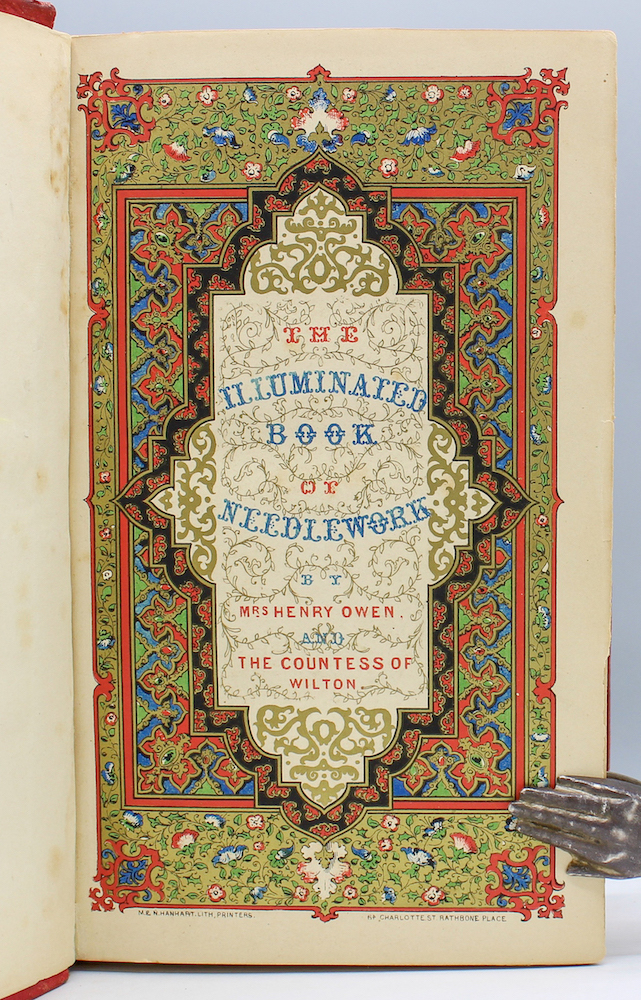 THE
ILLUMINATED
BOOK
OF
NEEDLEWORK
BY
MRS HENRY OWEN.
AND
THE COUNTESS OF
WILTON
M. & N. HANHART. LITH, PRINTERS.
CHARLOTTE ST. RATHBONE PLACE